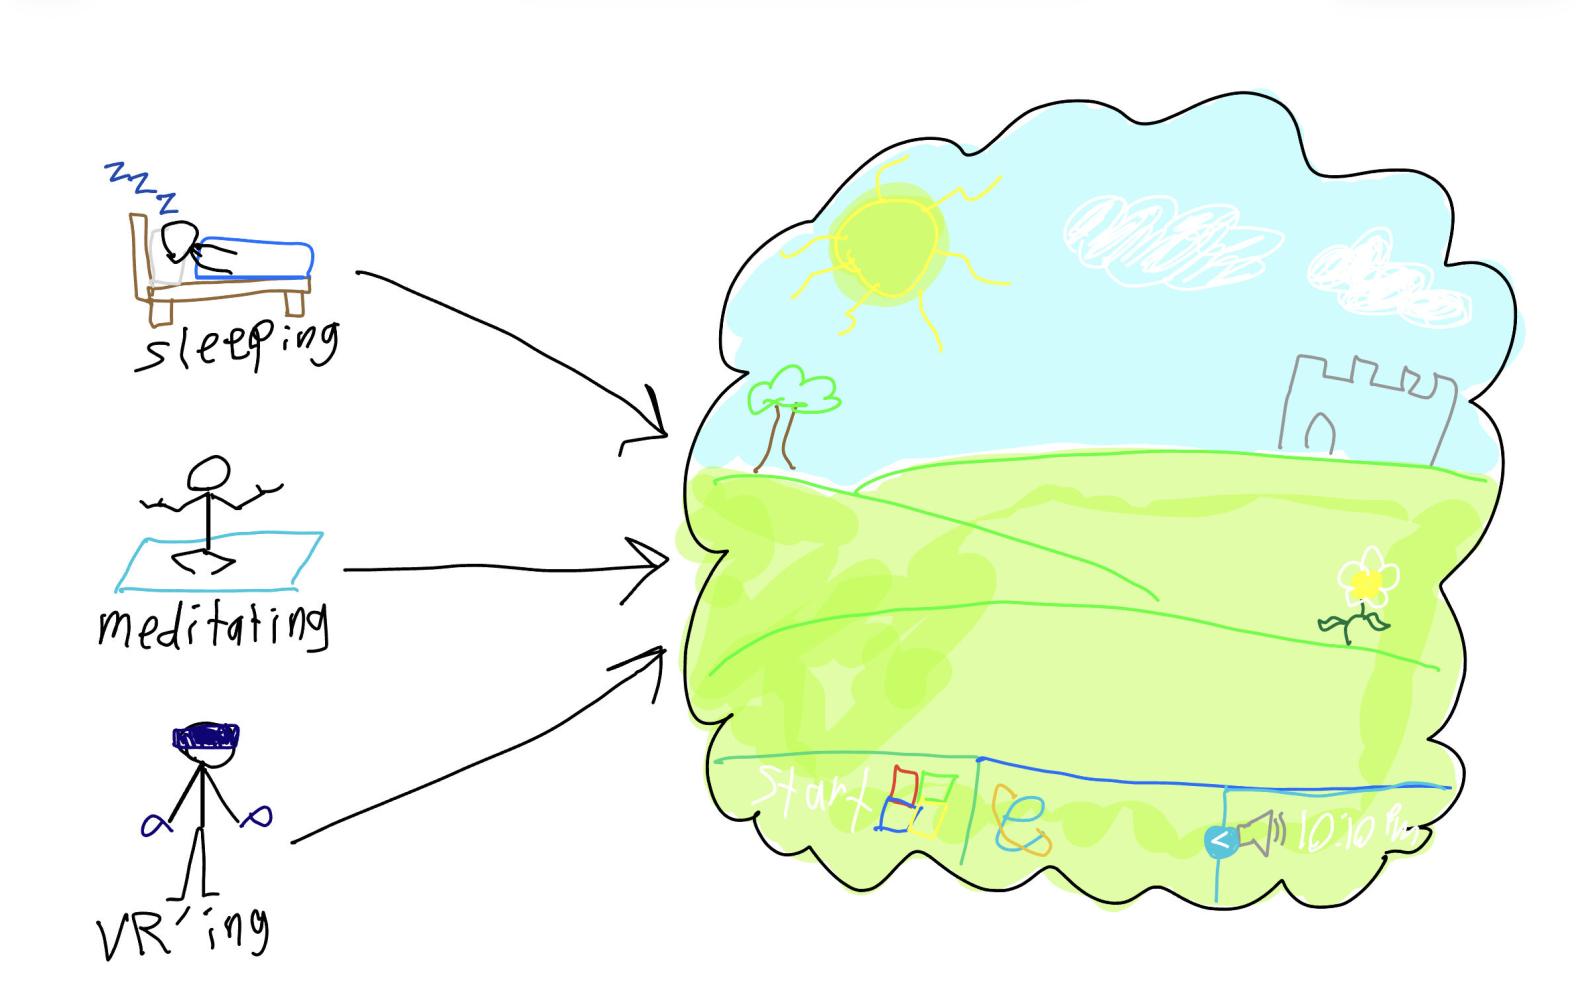 zzz
sleeping
meditating
VR'ing
start
e
<
10:10 PM